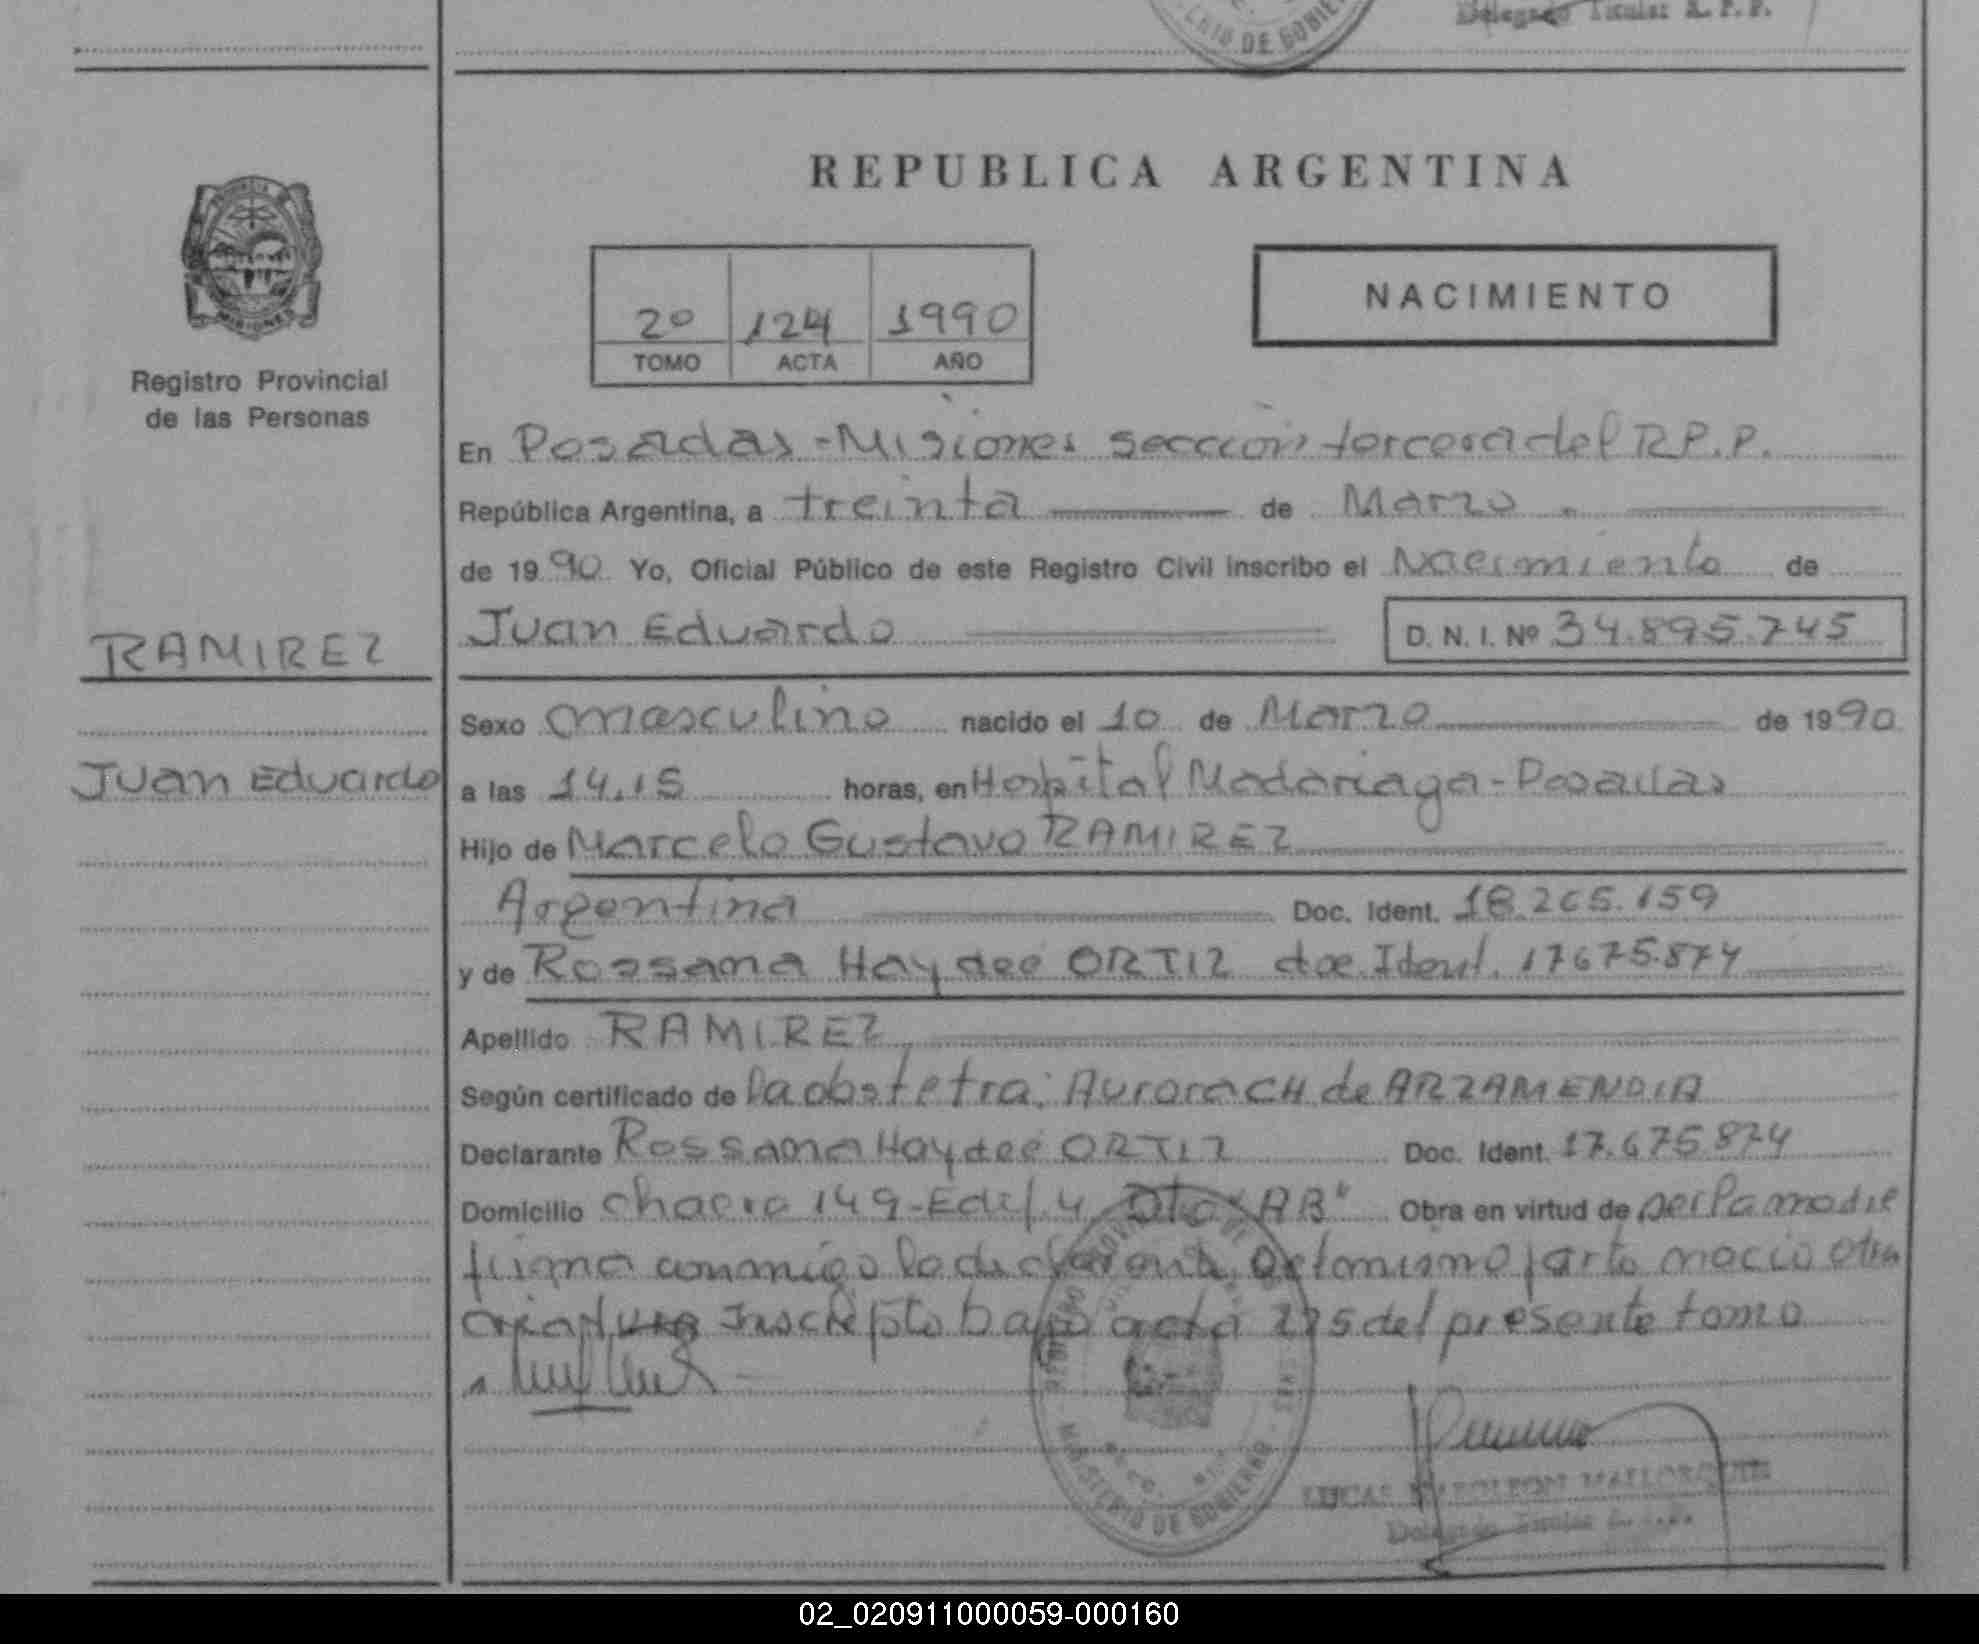 Delegado Titular R. P. P.
REPUBLICA ARGENTINA
2º 124 1990
TOMO ACTA AÑO
NACIMIENTO
MISIONES
Registro Provincial
de las Personas
En Posadas - Misiones sección tercera del R.P.P.
República Argentina, a treinta de Marzo
de 1990 Yo, Oficial Público de este Registro Civil inscribo el Nacimiento de
RAMIREZ
Juan Eduardo D. N. I. Nº 34.895.745
Sexo masculino nacido el 10 de Marzo de 1990
Juan Eduardo
a las 14,15 horas, en Hospital Madariaga - Posadas
Hijo de Marcelo Gustavo RAMIREZ
Argentina Doc. Ident. 18.265.159
y de Rossana Haydeé ORTIZ doc Ident. 17675.874
Apellido RAMIREZ
Según certificado de la obstetra: Aurora CH de ARZAMENDIA
Declarante Rossana Haydeé ORTIZ Doc. Ident. 17.675.874
Domicilio chacra 149-Edif. 4 Dto "AB" Obra en virtud de ser la madre
firma conmigo la declarante, del mismo parto nacio otra
criatura Inscripto bajo acta 225 del presente tomo
MINISTERIO DE GOBIERNO
LUCAS NAPOLEON MALLORQUIN
Delegado Titular R. P. P.
02_020911000059-000160